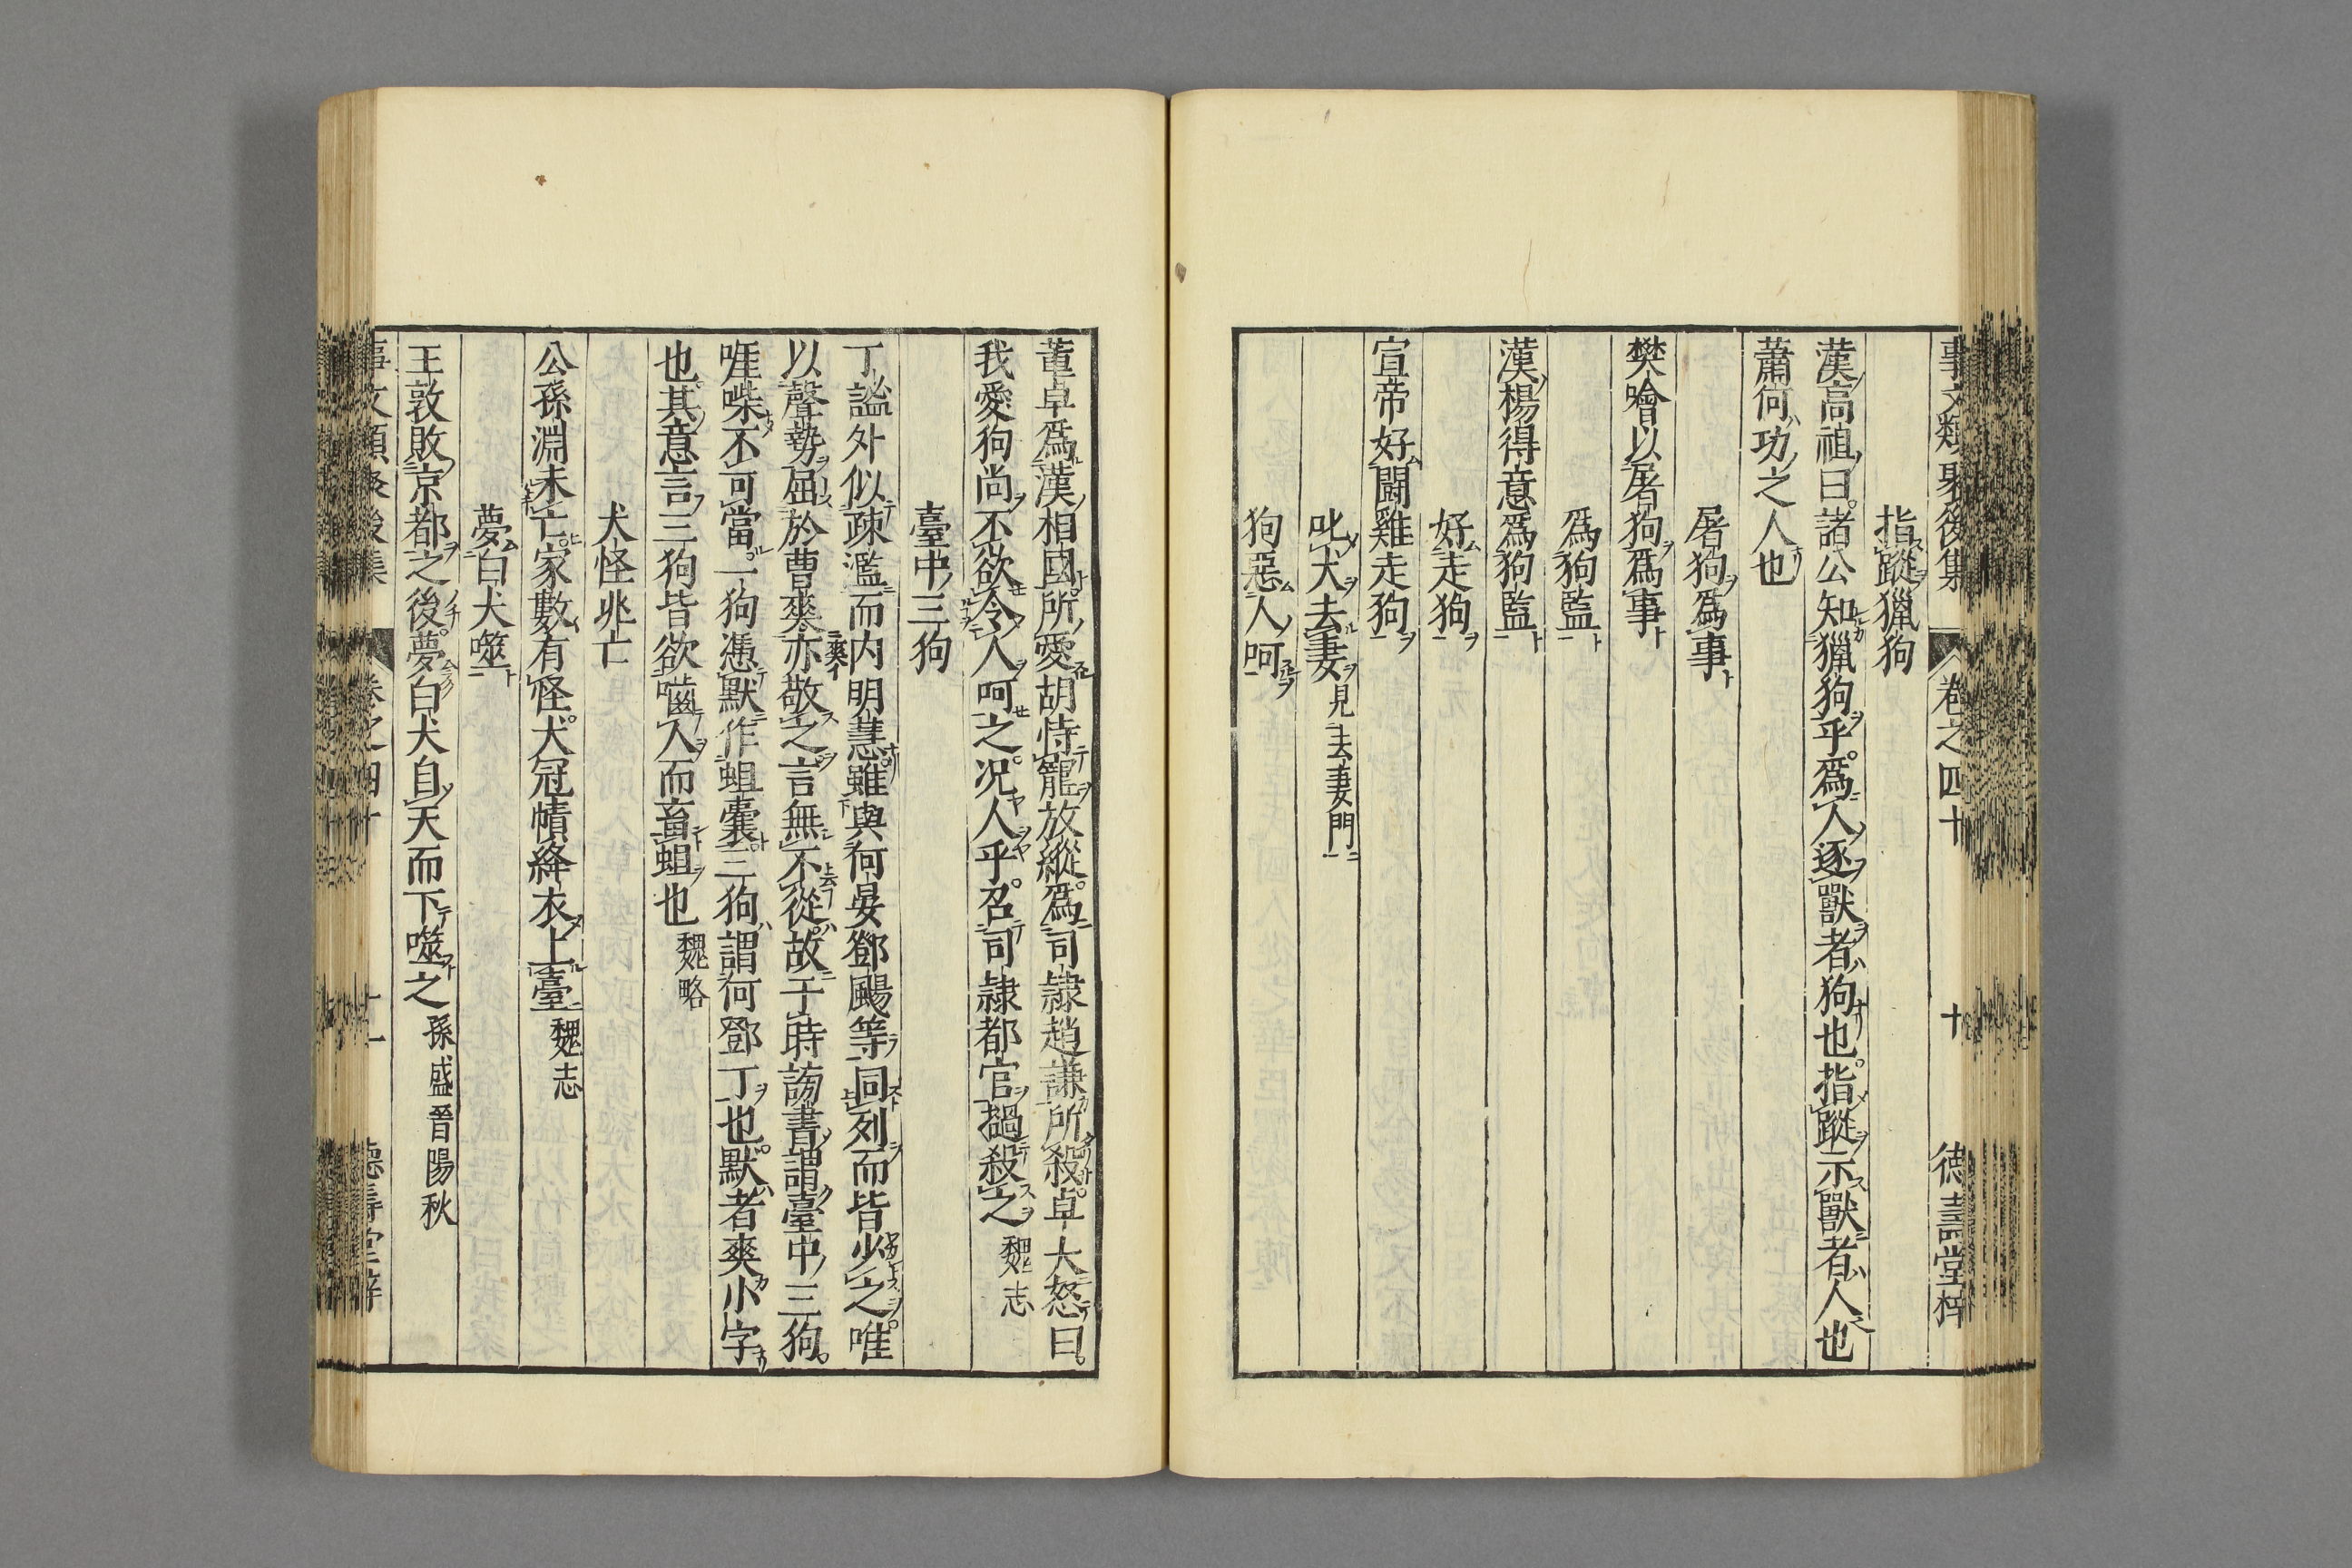 事文類聚後集 卷之四十 十 德壽堂梓
指蹤獵狗
漢高祖曰諸公知獵狗乎爲人逐獸者狗也指蹤示獸者人也
蕭何功之人也
屠狗爲事
樊噲以屠狗爲事
爲狗監
漢楊得意爲狗監
好走狗
宣帝好鬪雞走狗
叱犬去妻見去妻門
狗惡人呵
董卓爲漢相國所愛胡恃寵放縱爲司隷趙謙所殺卓大怒曰
我愛狗尚不欲令人呵之况人乎召司隷都官撾殺之魏志
臺中三狗
丁謐外似疎濫而内明慧雖與何晏鄧颺等同列而皆少之唯
以聲勢屈於曹爽亦敬之言無不從故于時謗書謂臺中三狗
啀喍不可當一狗憑默作蛆囊三狗謂何鄧丁也默者爽小字
也其意言三狗皆欲嚙人而畜蛆也魏略
犬怪兆亡
公孫淵未亡家數有怪犬冠幘絳衣上臺魏志
夢白犬噬
王敦敗京都之後夢白犬自天而下噬之孫盛晉陽秋
事文類聚後集 卷之四十 十一 德壽堂梓